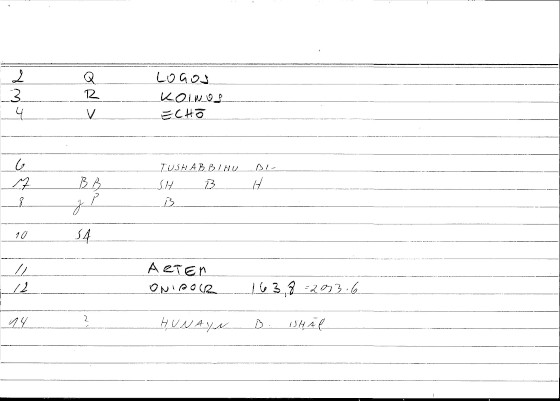 2 Q LOGOS
3 R KOINOS
4 V ECHŌ
6 TUSHABBIHU BI-
17 BB SH B H
8 P B
10 SA
11 ARTEM
12 163,8 = 2073.6
14 ? HUNAYN B. ISHĀQ